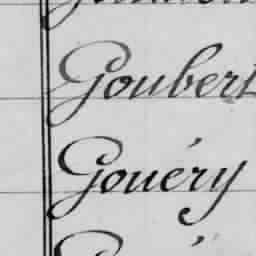 Goubert
Gouéry